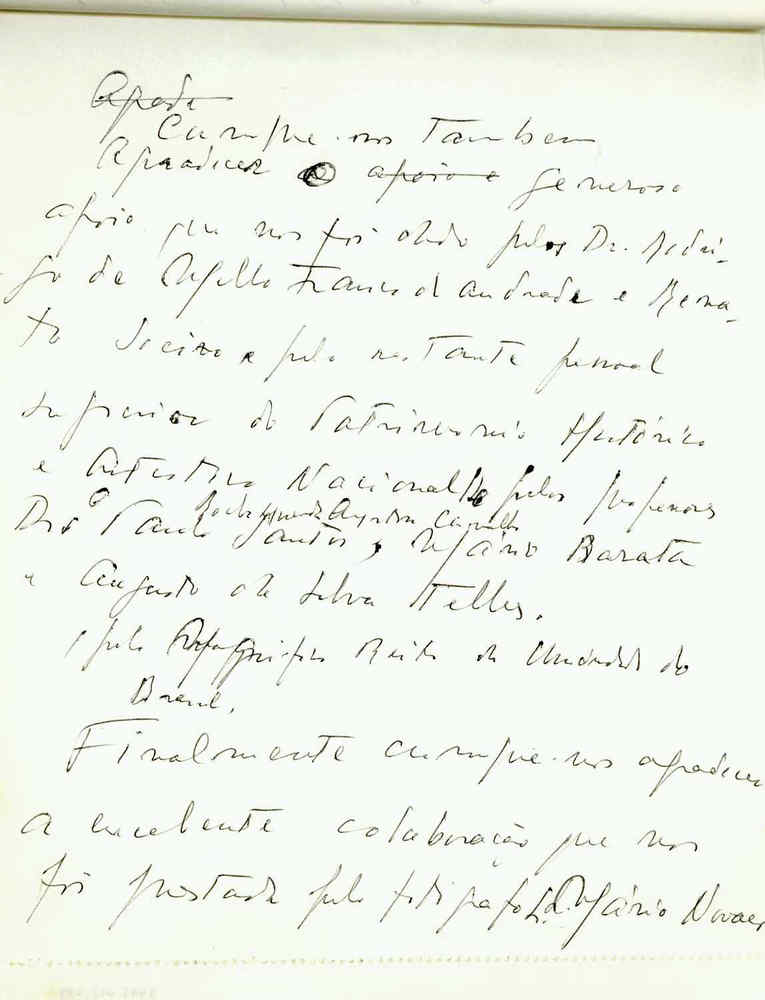 Agrade
Cumpre-nos tambem
Agradecer o apoio e generoso
apoio que nos foi dado pelos Dr. Rodri-
go de Mello Franco d'Andrade e Rena-
to Soeiro e pelo restante pessoal
superior do Patrimonio Histórico
e Artistico Nacional e pelos professores
Ayrton Carvalho
Drs Paulo Santos, Mário Barata
e Augusto da Silva Telles,
e pelo Magnifico Reitor da Universidade do
Brasil.
Finalmente cumpre-nos agradecer
a excelente colaboração que nos
foi prestada pelo fotógrafo Mário Novaes